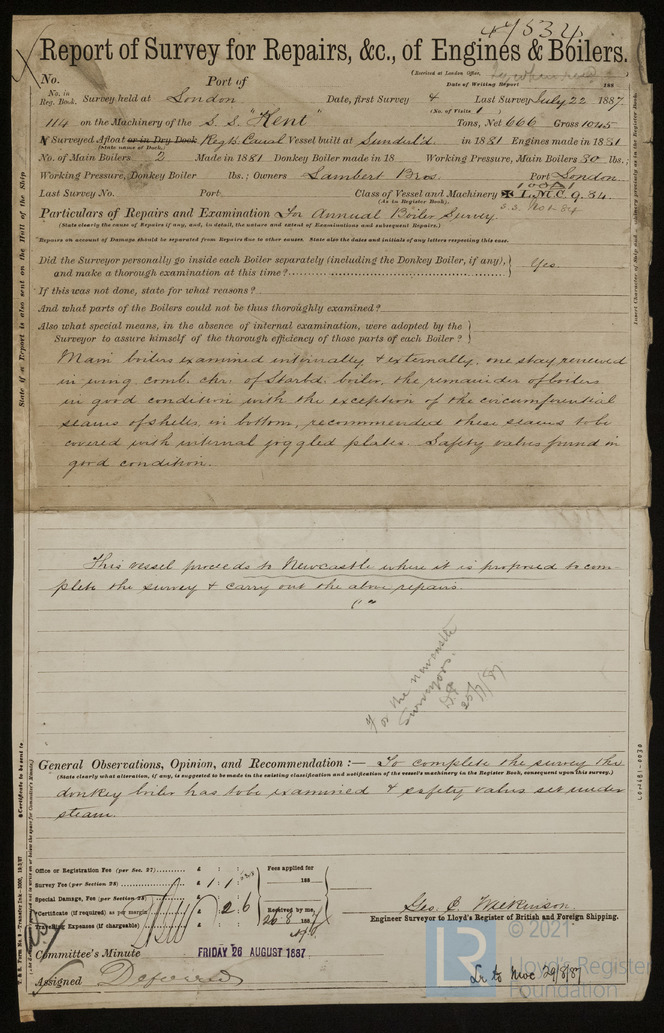 47534
Report of Survey for Repairs, &c., of Engines & Boilers.
(Received at London Office,
No. Port of Date of Writing Report 188
No. in Reg. Book. Survey held at London Date, first Survey 4 Last Survey July 22 1887.
(No. of Visits 1 )
114 on the Machinery of the S. S. "Kent" Tons, Net 666 Gross 1045
Surveyed Afloat or in Dry Dock Reg. Canal Vessel built at Sunderl'd. in 1881 Engines made in 1881
(State name of Dock.)
No. of Main Boilers 2 Made in 1881 Donkey Boiler made in 18 Working Pressure, Main Boilers 80 lbs.;
Working Pressure, Donkey Boiler lbs.; Owners Lambert Bros. Port London.
Last Survey No. Port. Class of Vessel and Machinery ✠ L.M.C. 9.84.
(As in Register Book).
Particulars of Repairs and Examination For Annual Boiler Survey.
(State clearly the cause of Repairs if any, and, in detail, the nature and extent of Examinations and subsequent Repairs.)
*Repairs on account of Damage should be separated from Repairs due to other causes. State also the dates and initials of any letters respecting this case.
Did the Surveyor personally go inside each Boiler separately (including the Donkey Boiler, if any), and make a thorough examination at this time? Yes
If this was not done, state for what reasons?
And what parts of the Boilers could not be thus thoroughly examined?
Also what special means, in the absence of internal examination, were adopted by the
Surveyor to assure himself of the thorough efficiency of those parts of each Boiler?
Main boilers examined internally & externally, one stay renewed
in wing comb. chr. of Starbd. boiler, the remainder of boilers
in good condition with the exception of the circumferential
seams of shells, in bottom, recommended these seams to be
covered with internal joggled plates. Safety valves found in
good condition.
This vessel proceeds to Newcastle where it is proposed to com-
plete the survey & carry out the above repairs.
For the Newcastle
Surveyors.
25/7/87
General Observations, Opinion, and Recommendation :— To complete the survey the
(State clearly what alteration, if any, is suggested to be made in the existing classification and notification of the vessel's machinery in the Register Book, consequent upon this survey.)
donkey boiler has to be examined & safety valves set under
steam.
Office or Registration Fee (per Sec. 27) £ : : Fees applied for
Survey Fee (per Section 28) £ 1 : 1 : 188
Special Damage, Fee (per Section 28) £ : :
Certificate (if required) as per margin £ : 2 . 6 Received by me,
Travelling Expenses (if chargeable) £ : : 26.8 1887
Geo. E. Watkinson.
Engineer Surveyor to Lloyd's Register of British and Foreign Shipping.
Committee's Minute FRIDAY 26 AUGUST 1887
Assigned Deferred
Lr to Nwc 29/8/87
LR
© 2021
Lloyd's Register
Foundation
State if a Report is also sent on the Hull of the Ship
LON681-0030